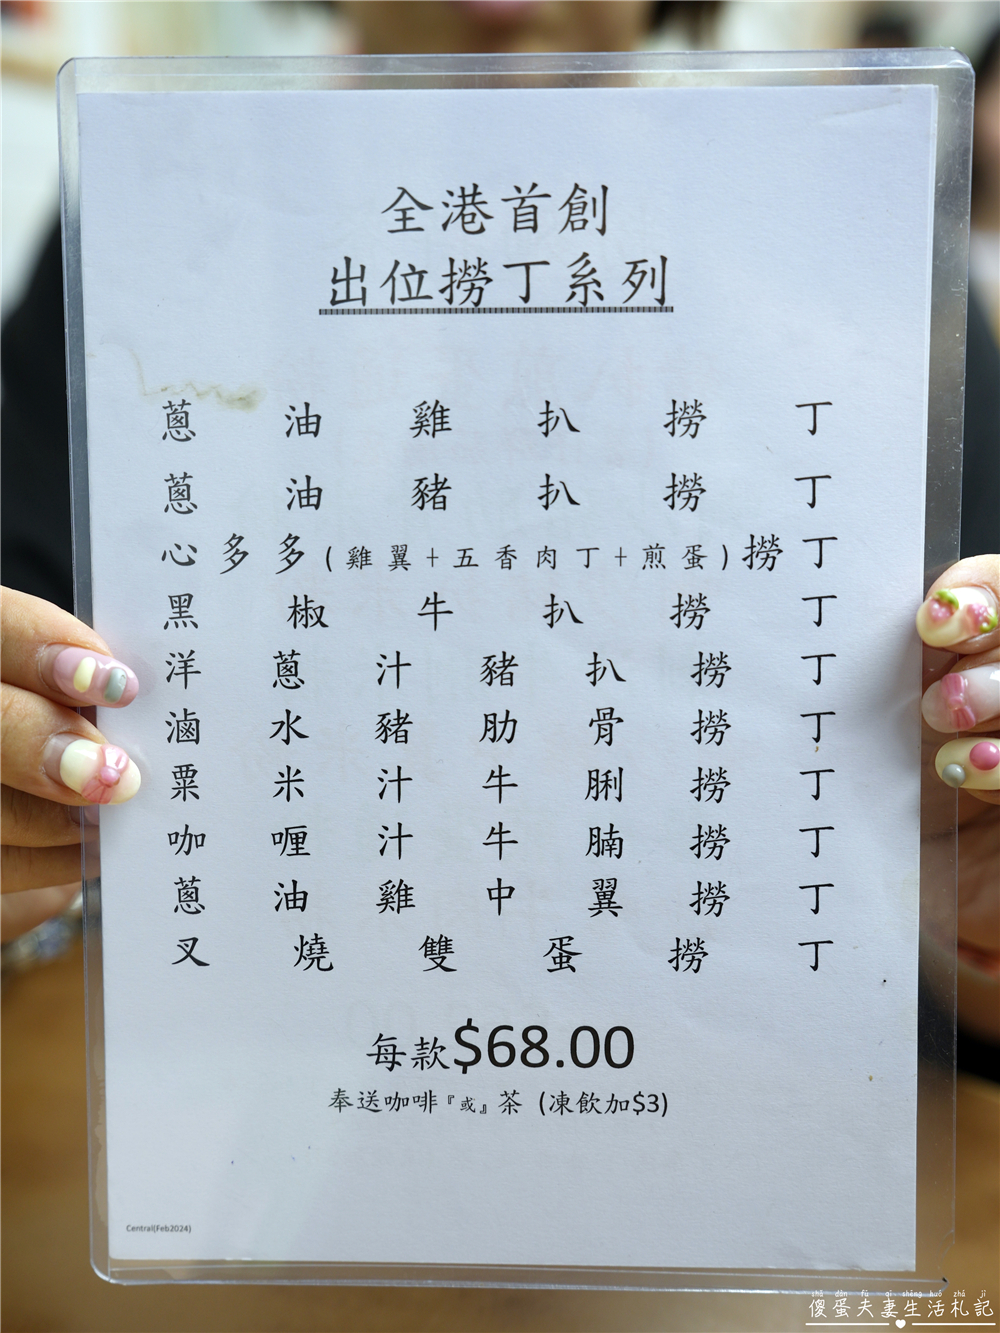 全港首創
出位撈丁系列
蔥油雞扒撈丁
蔥油豬扒撈丁
心多多(雞翼+五香肉丁+煎蛋)撈丁
黑椒牛扒撈丁
洋蔥汁豬扒撈丁
滷水豬肋骨撈丁
粟米汁牛脷撈丁
咖喱汁牛腩撈丁
蔥油雞中翼撈丁
叉燒雙蛋撈丁
每款$68.00
奉送咖啡『或』茶 (凍飲加$3)
Central(Feb2024)
shǎ dàn fū qī shēng huó zhá jì
傻蛋夫妻生活札記